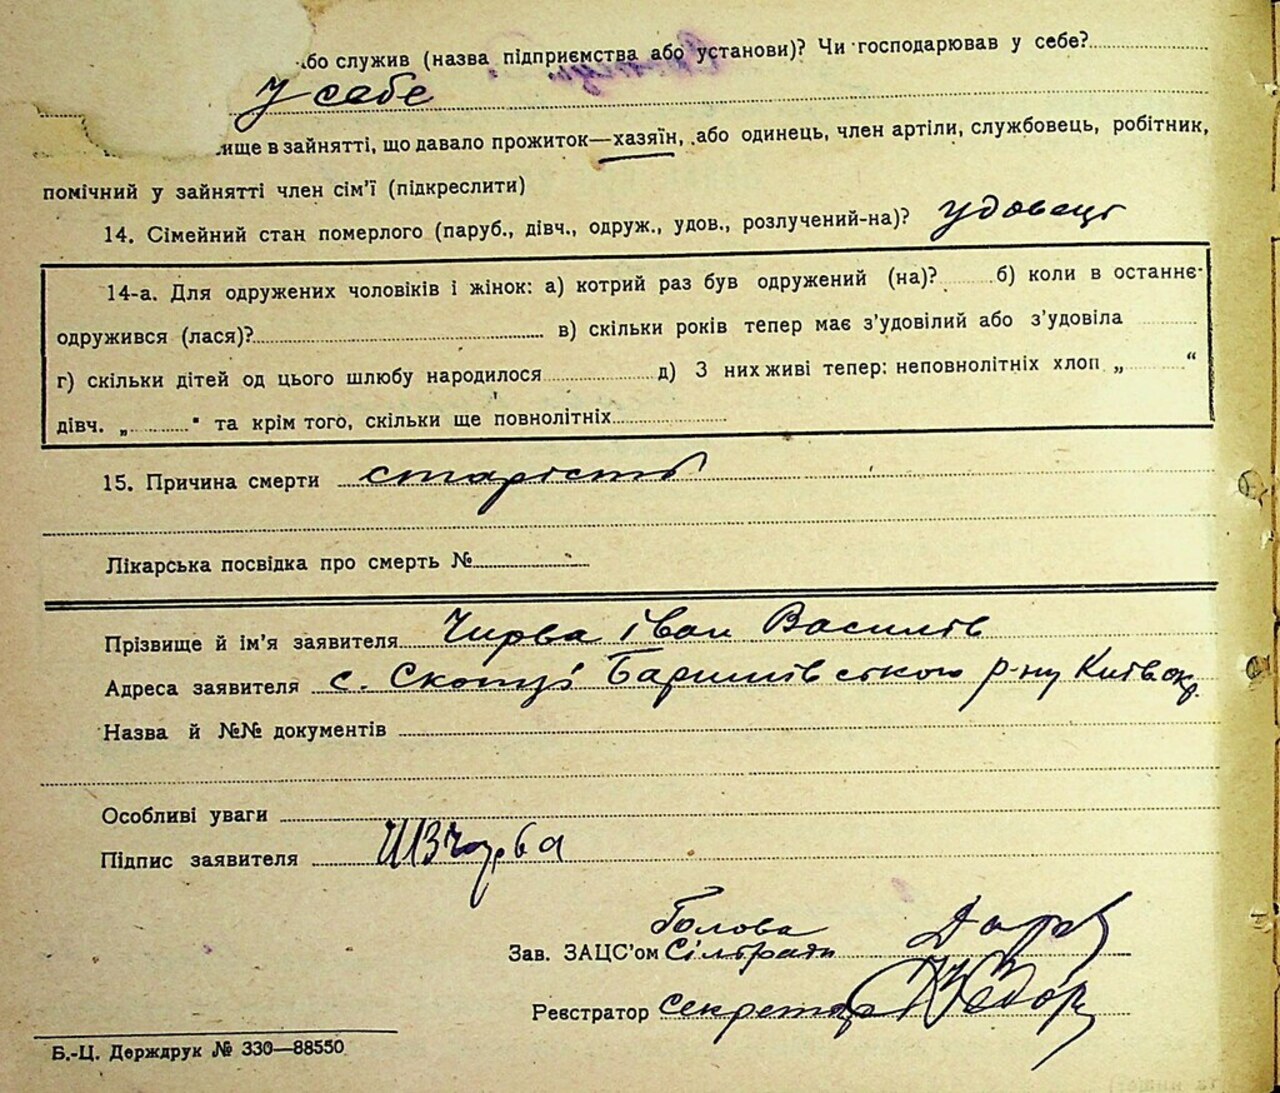 або служив (назва підприємства або установи)? Чи господарював у себе?
У себе
ище в зайнятті, що давало прожиток—хазяїн, або одинець, член артіли, службовець, робітник,
помічний у зайнятті член сім'ї (підкреслити)
14. Сімейний стан померлого (паруб., дівч., одруж., удов., розлучений-на)? удовець
14-а. Для одружених чоловіків і жінок: а) котрий раз був одружений (на)? б) коли в останнє
одружився (лася)? в) скільки років тепер має з'удовілий або з'удовіла
г) скільки дітей од цього шлюбу народилося д) З них живі тепер: неповнолітніх хлоп „ “
дівч. „ “ та крім того, скільки ще повнолітніх
15. Причина смерти старість
Лікарська посвідка про смерть №
Прізвище й ім'я заявителя Чирва Іван Василів
Адреса заявителя с. Скопці Баришівського р-ну Київ окр.
Назва й №№ документів
Особливі уваги
Підпис заявителя
Голова
Зав. ЗАЦС'ом Сільради
Реєстратор секретар
Б.-Ц. Держдрук № 330—88550